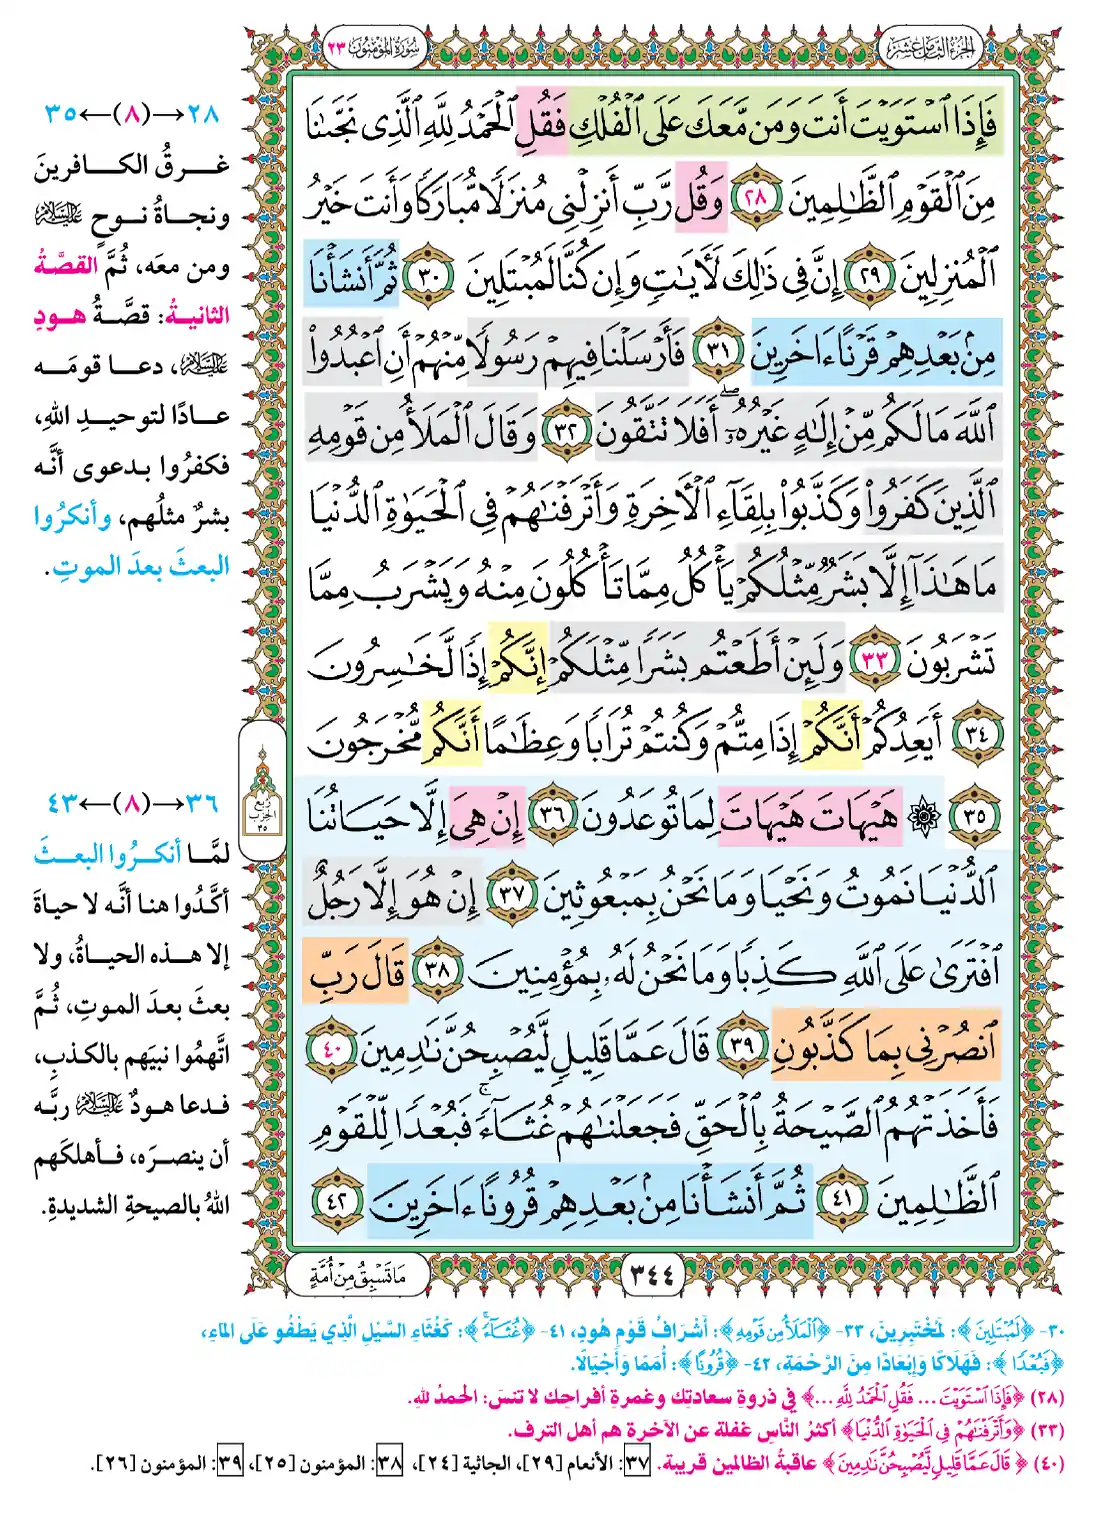 الجزء الثامن عشر
سورة المؤمنون ٢٣
فَإِذَا ٱسْتَوَيْتَ أَنتَ وَمَن مَّعَكَ عَلَى ٱلْفُلْكِ فَقُلِ ٱلْحَمْدُ لِلَّهِ ٱلَّذِى نَجَّىٰنَا
مِنَ ٱلْقَوْمِ ٱلظَّـٰلِمِينَ ٢٨ وَقُل رَّبِّ أَنزِلْنِى مُنزَلًا مُّبَارَكًا وَأَنتَ خَيْرُ
ٱلْمُنزِلِينَ ٢٩ إِنَّ فِى ذَٰلِكَ لَـَٔايَـٰتٍ وَإِن كُنَّا لَمُبْتَلِينَ ٣٠ ثُمَّ أَنشَأْنَا
مِنۢ بَعْدِهِمْ قَرْنًا ءَاخَرِينَ ٣١ فَأَرْسَلْنَا فِيهِمْ رَسُولًا مِّنْهُمْ أَنِ ٱعْبُدُوا۟
ٱللَّهَ مَا لَكُم مِّنْ إِلَـٰهٍ غَيْرُهُۥٓ ۖ أَفَلَا تَتَّقُونَ ٣٢ وَقَالَ ٱلْمَلَأُ مِن قَوْمِهِ
ٱلَّذِينَ كَفَرُوا۟ وَكَذَّبُوا۟ بِلِقَآءِ ٱلْـَٔاخِرَةِ وَأَتْرَفْنَـٰهُمْ فِى ٱلْحَيَوٰةِ ٱلدُّنْيَا
مَا هَـٰذَآ إِلَّا بَشَرٌ مِّثْلُكُمْ يَأْكُلُ مِمَّا تَأْكُلُونَ مِنْهُ وَيَشْرَبُ مِمَّا
تَشْرَبُونَ ٣٣ وَلَئِنْ أَطَعْتُم بَشَرًا مِّثْلَكُمْ إِنَّكُمْ إِذًا لَّخَـٰسِرُونَ
٣٤ أَيَعِدُكُمْ أَنَّكُمْ إِذَا مِتُّمْ وَكُنتُمْ تُرَابًا وَعِظَـٰمًا أَنَّكُم مُّخْرَجُونَ
٣٥ ۞ هَيْهَاتَ هَيْهَاتَ لِمَا تُوعَدُونَ ٣٦ إِنْ هِىَ إِلَّا حَيَاتُنَا
ٱلدُّنْيَا نَمُوتُ وَنَحْيَا وَمَا نَحْنُ بِمَبْعُوثِينَ ٣٧ إِنْ هُوَ إِلَّا رَجُلٌ
ٱفْتَرَىٰ عَلَى ٱللَّهِ كَذِبًا وَمَا نَحْنُ لَهُۥ بِمُؤْمِنِينَ ٣٨ قَالَ رَبِّ
ٱنصُرْنِى بِمَا كَذَّبُونِ ٣٩ قَالَ عَمَّا قَلِيلٍ لَّيُصْبِحُنَّ نَـٰدِمِينَ ٤٠
فَأَخَذَتْهُمُ ٱلصَّيْحَةُ بِٱلْحَقِّ فَجَعَلْنَـٰهُمْ غُثَآءً ۚ فَبُعْدًا لِّلْقَوْمِ
ٱلظَّـٰلِمِينَ ٤١ ثُمَّ أَنشَأْنَا مِنۢ بَعْدِهِمْ قُرُونًا ءَاخَرِينَ ٤٢
٣٤٤
مَا تَسْبِقُ مِنْ أُمَّةٍ
٢٨→(٨)←٣٥
غـرقُ الكـافرينَ
ونجـاةُ نـوحٍ عليه السلام
ومن معَه، ثُمَّ القصَّةُ
الثانيةُ: قصَّـةُ هـودٍ
عليه السلام، دعـا قومَـه
عـادًا لتوحيـدِ اللهِ،
فكفرُوا بـدعوى أنَّـه
بشرٌ مثلُهم، وأنكرُوا
البعثَ بعدَ الموتِ.
ربع الحزب ٣٥
٣٦→(٨)←٤٣
لمَّـا أنكـرُوا البعـثَ
أكَّدُوا هنا أنَّه لا حياةَ
إلا هـذه الحياةُ، ولا
بعثَ بعدَ الموتِ، ثُمَّ
اتَّهمُوا نبيَهم بالكذبِ،
فـدعا هـودٌ عليه السلام ربَّـه
أن ينصرَه، فـأهلكَهم
اللهُ بالصيحةِ الشديدةِ.
٣٠- ﴿لَمُبْتَلِينَ﴾: لَمُخْتَبِرِينَ، ٣٣- ﴿ٱلْمَلَأُ مِن قَوْمِهِ﴾: أَشْرَافُ قَوْمِ هُودٍ، ٤١- ﴿غُثَآءً ۚ﴾: كَغُثَاءِ السَّيْلِ الَّذِي يَطْفُو عَلَى المَاءِ،
﴿فَبُعْدًا﴾: فَهَلَاكًا وَإِبْعَادًا مِنَ الرَّحْمَةِ، ٤٢- ﴿قُرُونًا﴾: أُمَمًا وَأَجْيَالًا.
(٢٨) ﴿فَإِذَا ٱسْتَوَيْتَ ... فَقُلِ ٱلْحَمْدُ لِلَّهِ ...﴾ في ذروةِ سعادتِك وغمرةِ أفراحِك لا تنسَ: الحمدُ لله.
(٣٣) ﴿وَأَتْرَفْنَـٰهُمْ فِى ٱلْحَيَوٰةِ ٱلدُّنْيَا﴾ أكثرُ النَّاسِ غفلة عن الآخرة هم أهل الترف.
(٤٠) ﴿قَالَ عَمَّا قَلِيلٍ لَّيُصْبِحُنَّ نَـٰدِمِينَ﴾ عاقبةُ الظالمين قريبة. ٣٧: الأنعام [٢٩]، الجاثية [٢٤]، ٣٨: المؤمنون [٢٥]، ٣٩: المؤمنون [٢٦].